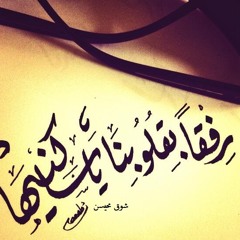 رِفْقَاً بِقُلُوبِنَا يَا سَاكِنِيهَا
شوق محيسن